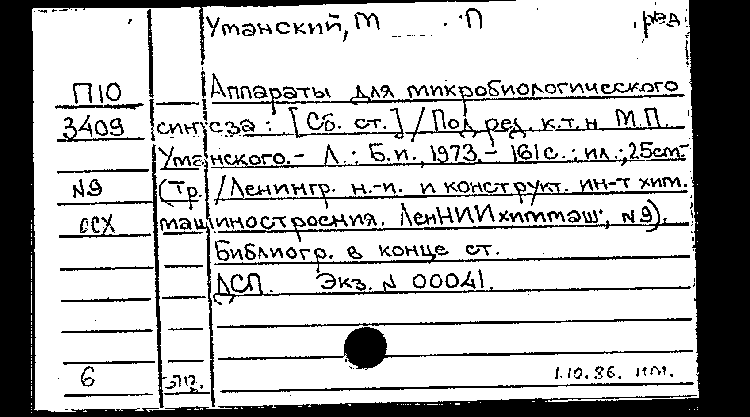 Уманский, М. П. ред.
П10 Аппараты для микробиологического
3409 синтеза: [Сб. ст.] / Под ред. к.т.н. М.П.
Уманского. - Л.: Б.и., 1973. - 161с.: ил.; 25см.
N9 (Тр. / Ленингр. н.-и. и конструкт. ин-т хим.
ОСХ машиностроения. ЛенНИИхиммаш, N9).
Библиогр. в конце ст.
ДСП. Экз. N 00041.
6 1.10.86.